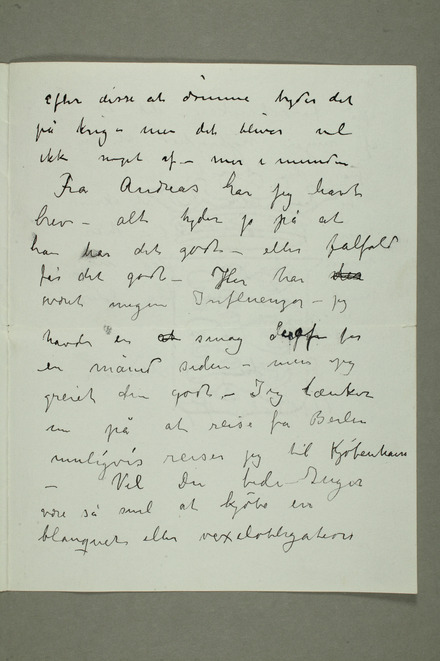 Efter disse at dømme tyder det
på krig – men det bliver vel
ikke noget af – mor i munden
Fra Andreas har jeg havt
brev – alt tyder jo på at
han har det godt – eller ialfald
får det godt – Her har
været megen Influenza – jeg
havde en smag for
en måned siden – men jeg
greiet den godt – Jeg tænker
nu på at reise fra Berlin
muligvis reiser jeg til Kjøbenhavn
– Vil Du bede Inger
være så snil at kjøbe en
blanquet eller vexelobligations